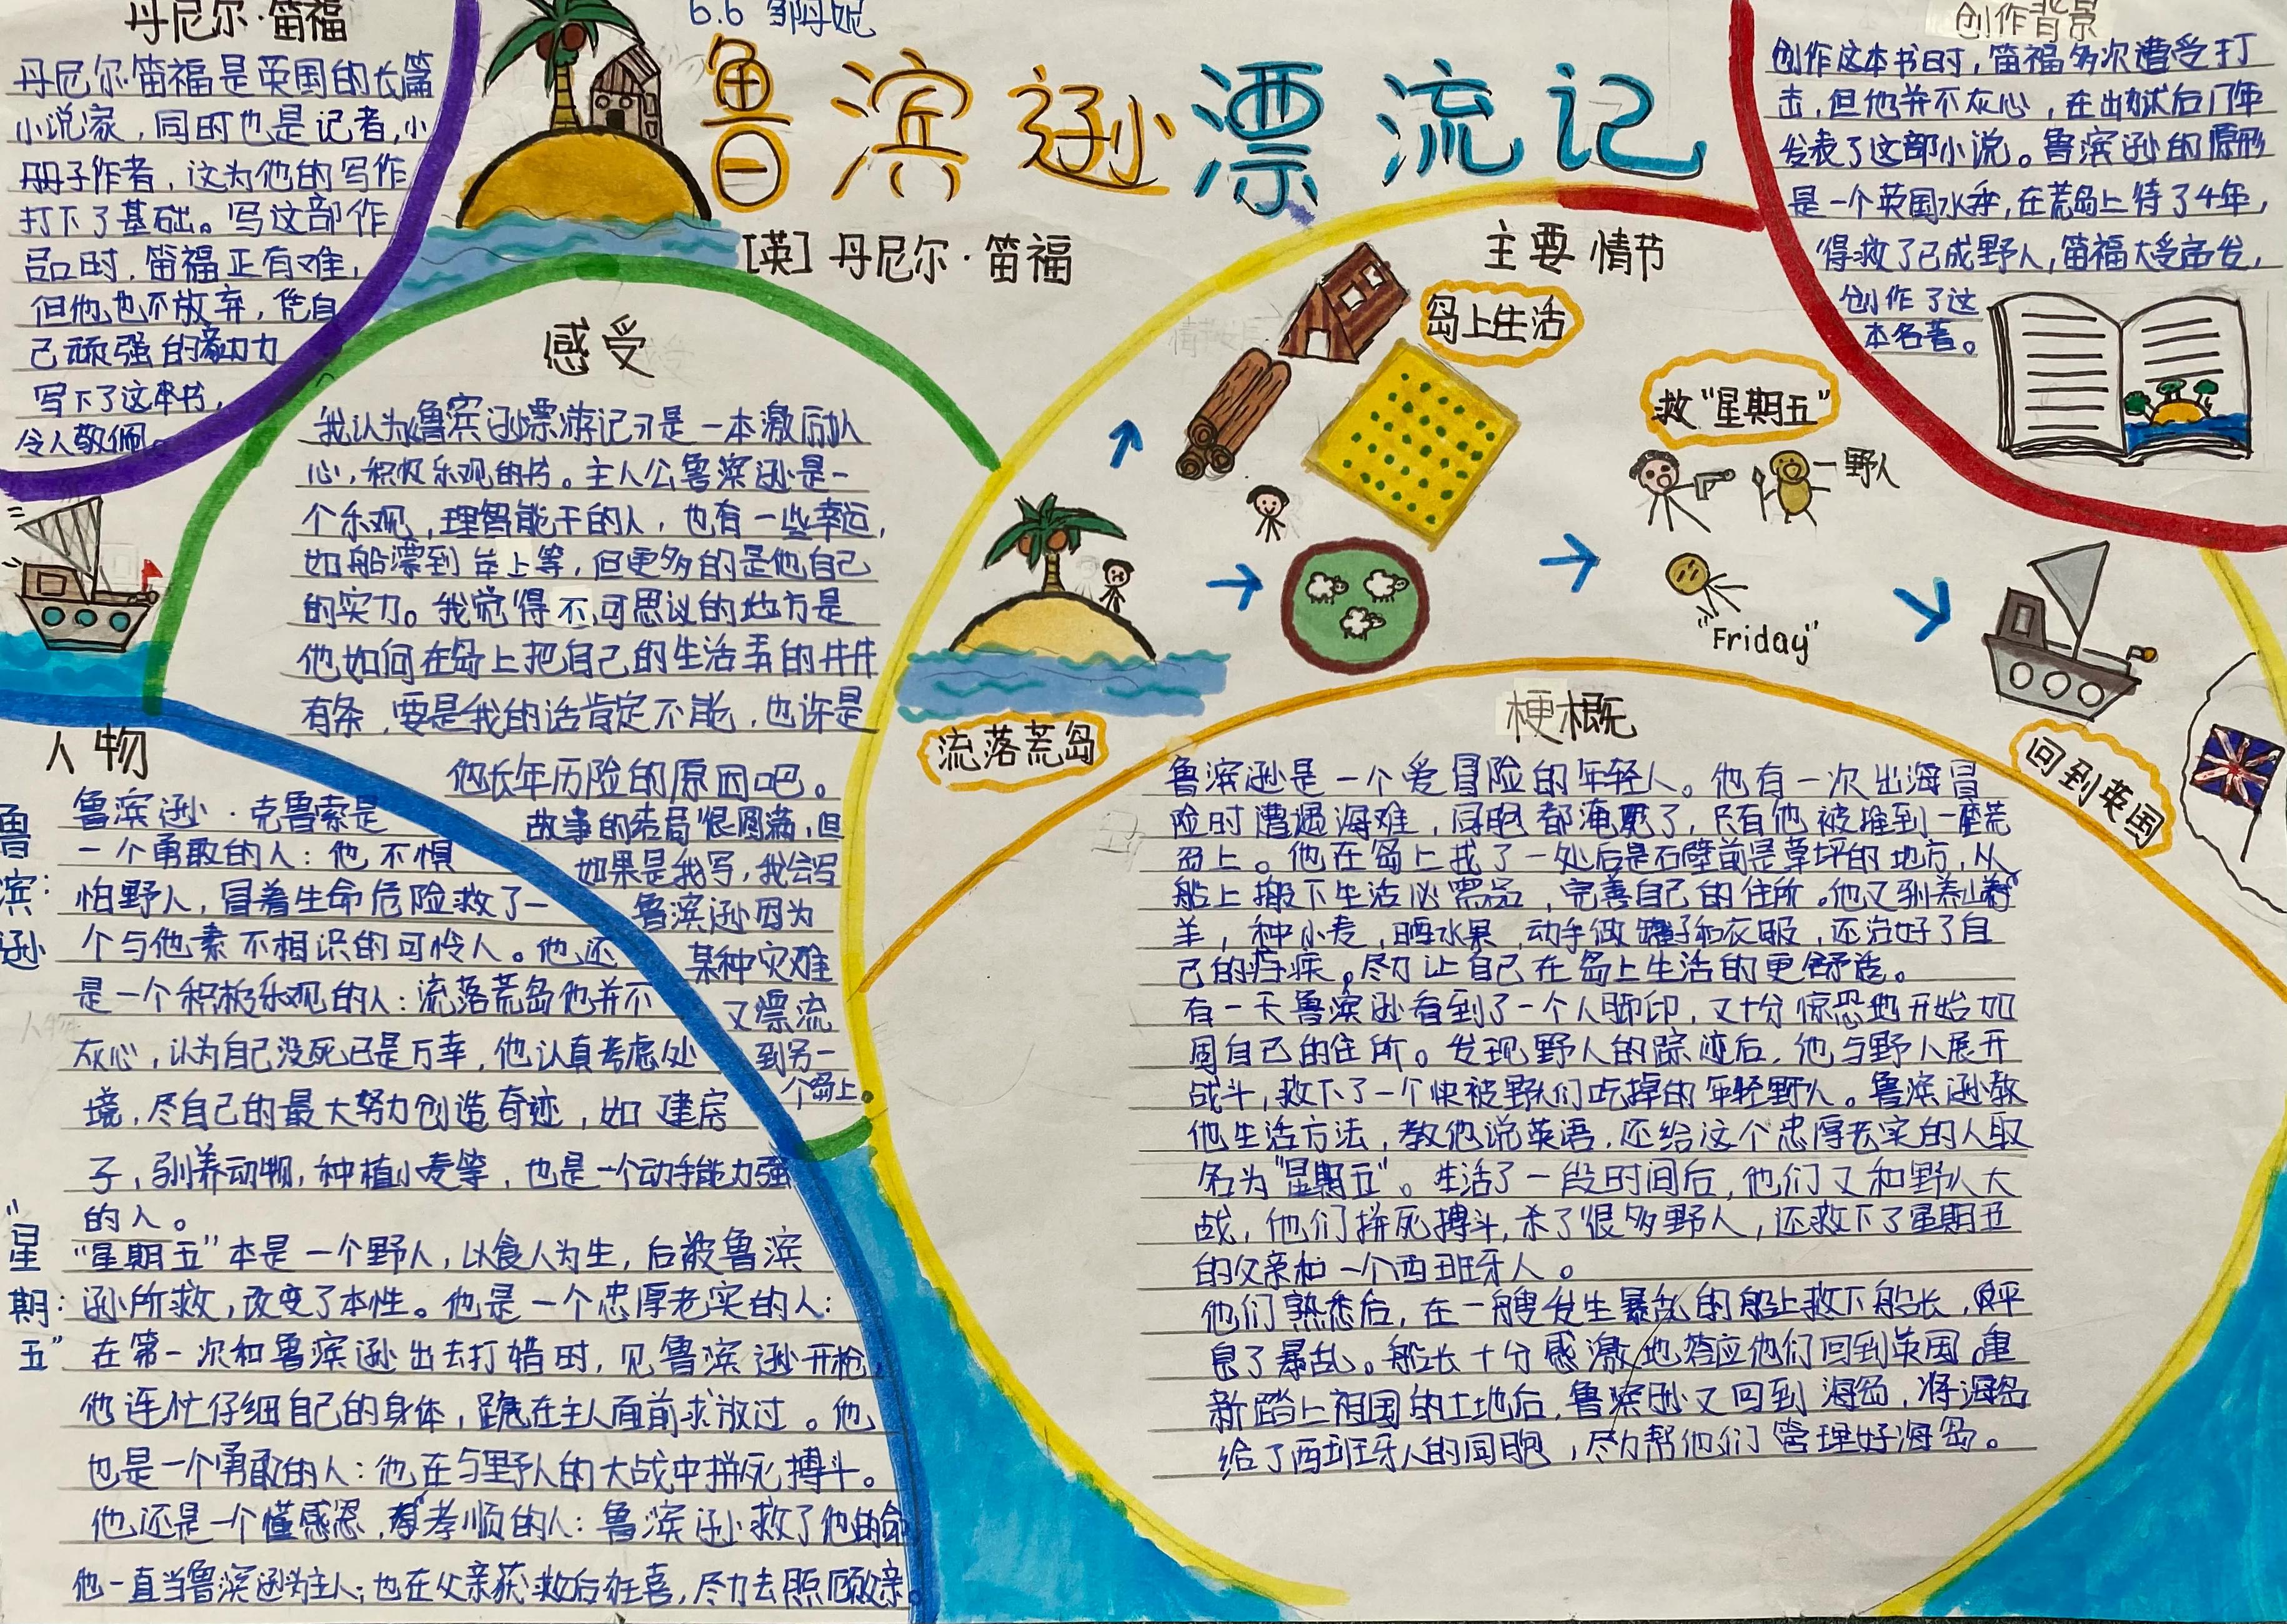 丹尼尔·笛福
丹尼尔·笛福是英国的长篇
小说家，同时也是记者，小
册子作者，这为他的写作
打下了基础。写这部作
品时，笛福正有难，
但他也不放弃，凭自
己顽强的毅力
写下了这本书，
令人敬佩。
6.6 邹丹妮
鲁滨逊漂流记
[英]丹尼尔·笛福
创作背景
创作这本书时，笛福多次遭受打
击，但他并不灰心，在出狱后门年
发表了这部小说。鲁滨逊的原形
是一个英国水手，在荒岛上待了4年，
得救了已成野人，笛福大受启发，
创作了这
本名著。
感受
我认为《鲁滨逊漂游记》是一本激励人
心，积极乐观的书。主人公鲁滨逊是一
个乐观，理智能干的人，也有一些幸运，
如船漂到岸上等，但更多的是他自己
的实力。我觉得不可思议的地方是
他如何在岛上把自己的生活弄的井井
有条，要是我的话肯定不能，也许是
他长年历险的原因吧。
故事的结局很圆满，但
如果是我写，我会写
鲁滨逊因为
某种灾难
又漂流
到另一
个岛上。
主要情节
岛上生活
救“星期五”
野人
"Friday"
流落荒岛
回到英国
人物
鲁滨逊：
鲁滨逊·克鲁索是
一个勇敢的人：他不惧
怕野人，冒着生命危险救了一
个与他素不相识的可怜人。他还
是一个积极乐观的人：流落荒岛他并不
灰心，认为自己没死已是万幸，他认真考虑处
境，尽自己的最大努力创造奇迹，如建房
子，驯养动物，种植小麦等，也是一个动手能力强
的人。
“星期五”：
“星期五”本是一个野人，以食人为生，后被鲁滨
逊所救，改变了本性。他是一个忠厚老实的人：
在第一次和鲁滨逊出去打猎时，见鲁滨逊开枪，
他连忙仔细自己的身体，跪在主人面前求放过。他
也是一个勇敢的人：他在与野人的大战中拼死搏斗。
他还是一个懂感恩，孝顺的人：鲁滨逊救了他的命
他一直当鲁滨逊为主人；也在父亲获救后狂喜，尽力去照顾父亲。
梗概
鲁滨逊是一个爱冒险的年轻人。他有一次出海冒
险时遭遇海难，同胞都淹死了，只有他被推到一座荒
岛上。他在岛上找了一处后是石壁前是草坪的地方，从
船上搬下生活必需品，完善自己的住所。他又驯养山
羊，种小麦，晒水果，动手做罐子和衣服，还治好了自
己的疟疾。尽力让自己在岛上生活的更舒适。
有一天鲁滨逊看到了一个人脚印，又十分惊恐地开始加
固自己的住所。发现野人的踪迹后，他与野人展开
战斗，救下了一个快被野人们吃掉的年轻野人。鲁滨逊教
他生活方法，教他说英语，还给这个忠厚老实的人取
名为“星期五”。生活了一段时间后，他们又和野人大
战，他们拼死搏斗，杀了很多野人，还救下了星期五
的父亲和一个西班牙人。
他们熟悉后，在一艘发生暴乱的船上救下船长，平
息了暴乱。船长十分感激地答应他们回到英国，重
新踏上祖国的土地后，鲁滨逊又回到海岛，将海岛
给了西班牙人的同胞，尽力帮他们管理好海岛。